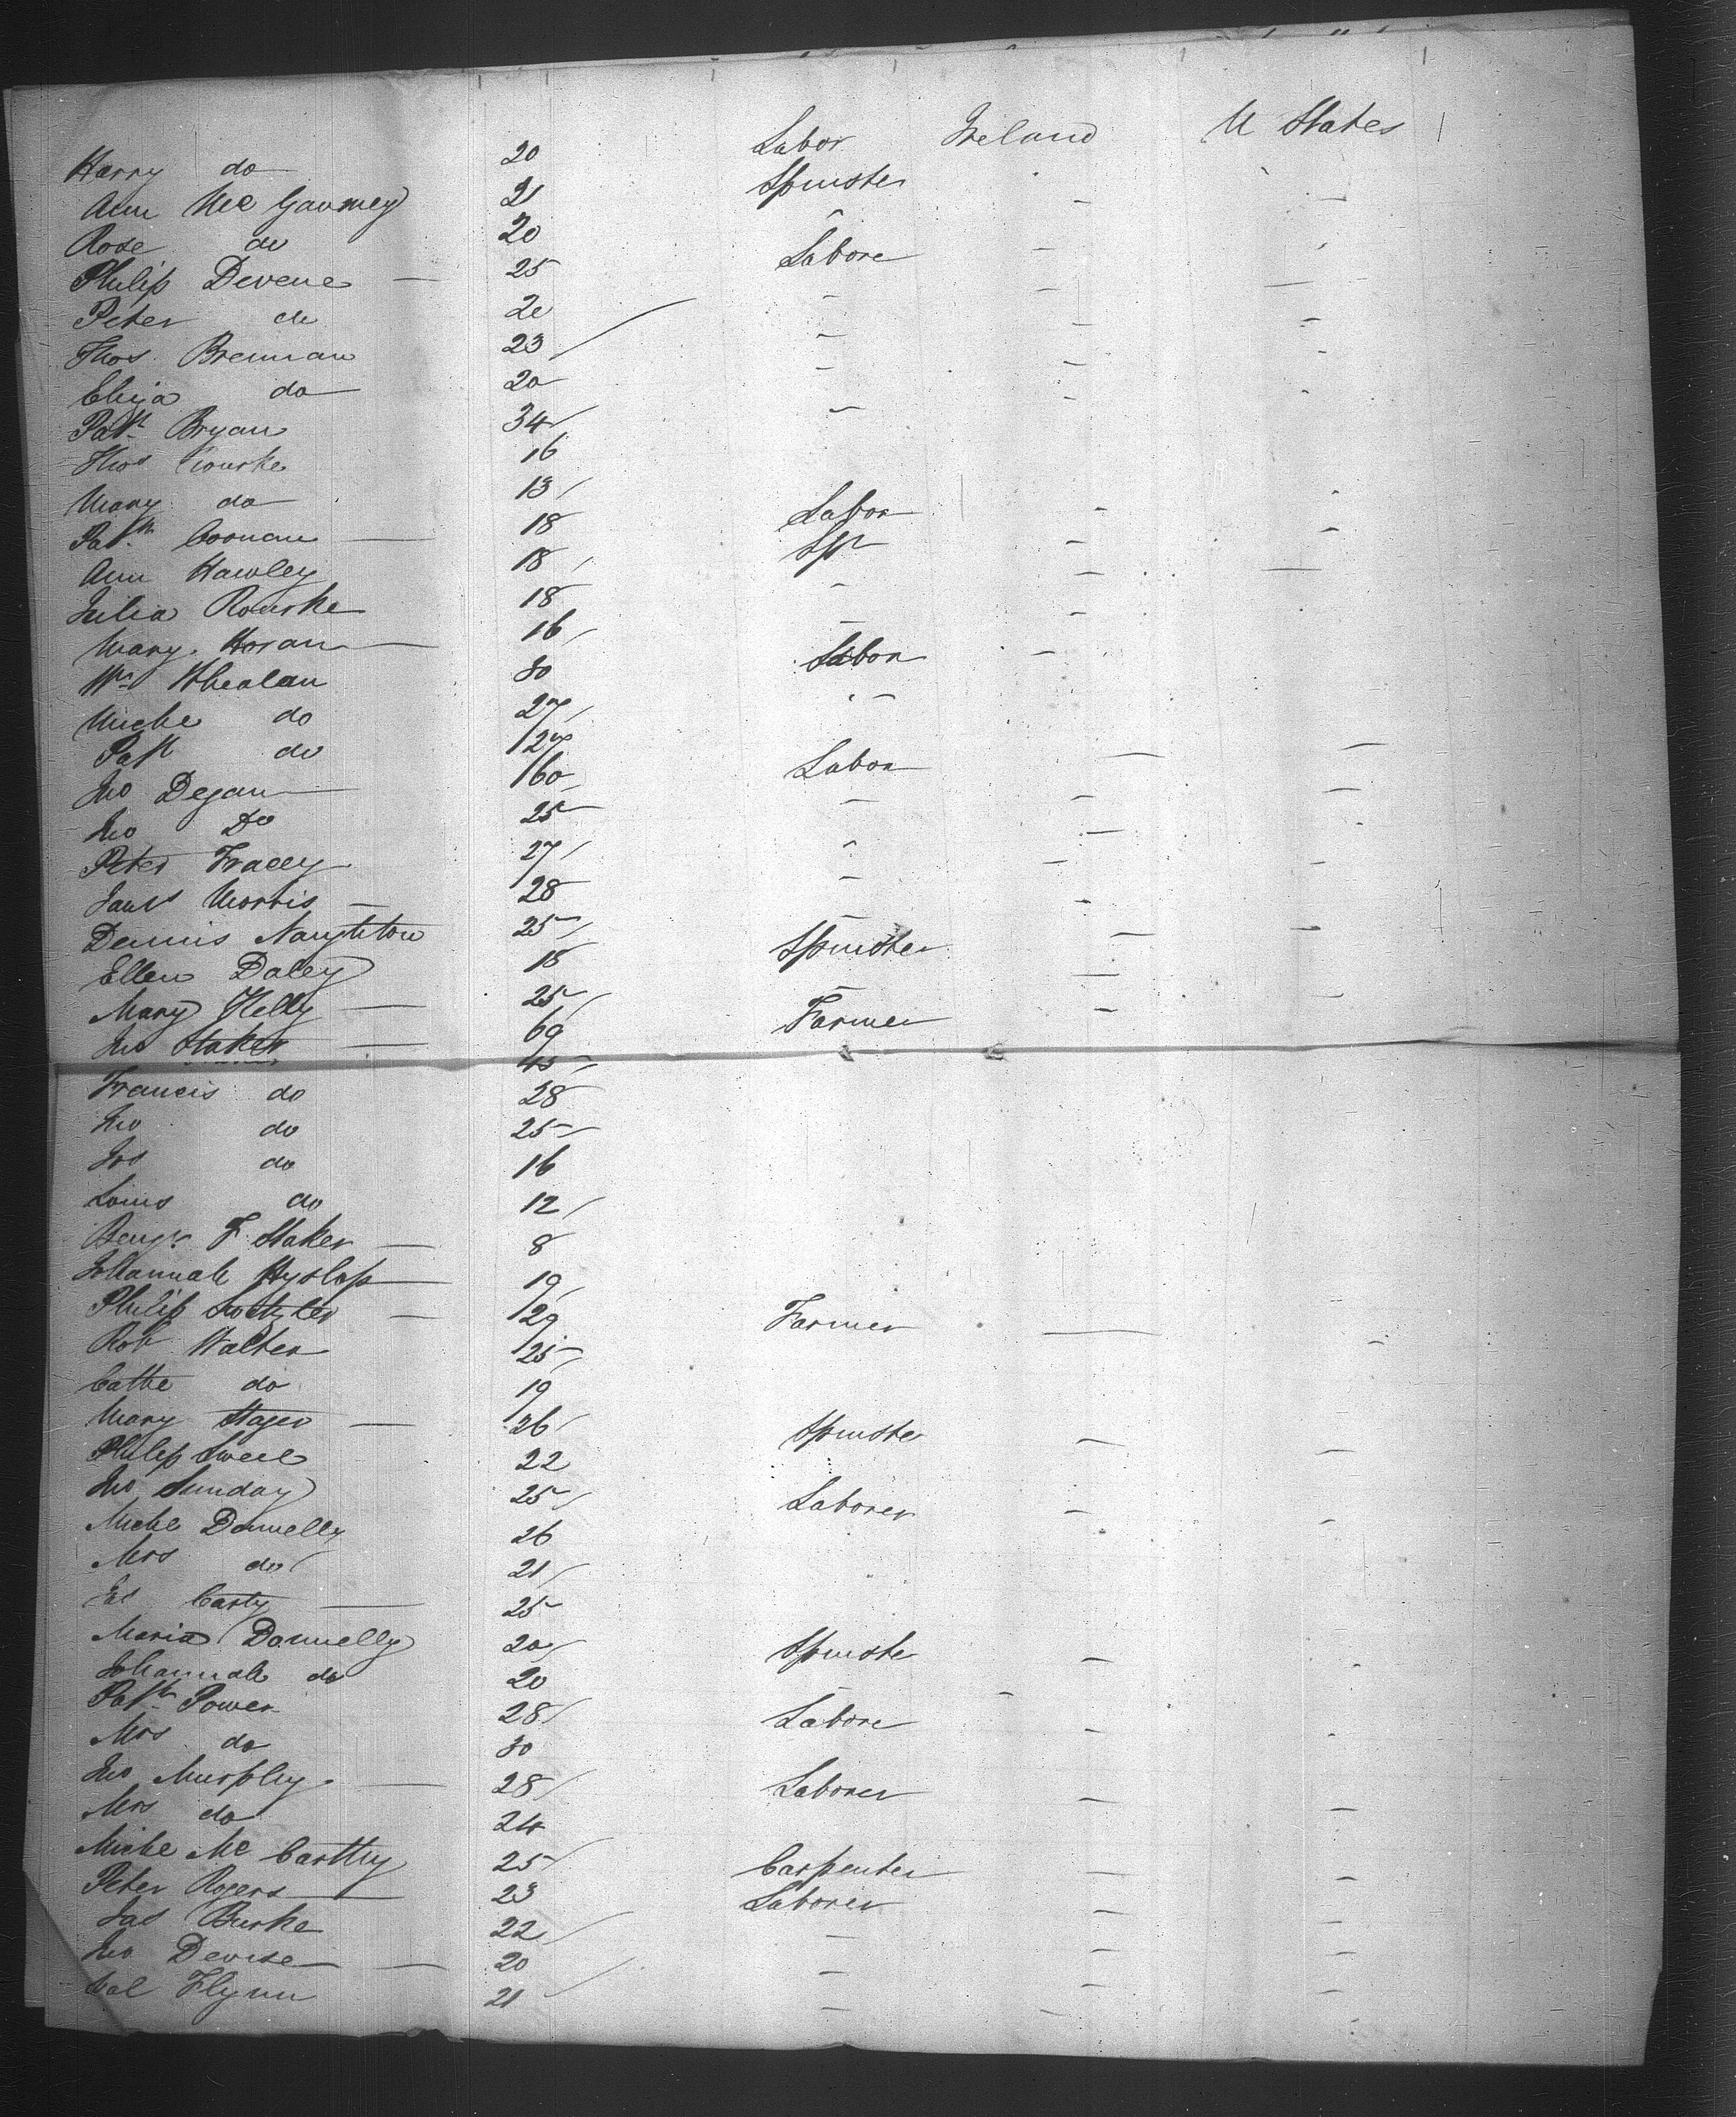 Harry do 20 Labor Ireland U States
Ann Mc Gaurney 21 Spinster - -
Rose do 20 "
Philip Devene — 25 Labore - -
Peter do 20 - - -
Thos. Brennan 23 - - -
Eliza do 20 - - -
Patk Bryan 34 - -
Thos Rourke 16
Mary do 13
Patk Coonan — 18 Labor - -
Ann Hawley 18 Spr - -
Julia Rourke 18 - - -
Mary Horan — 16 - -
Wm Whealan 30 Labor -
Miche do 27 " -
Patk do 27
Jno Degan — 60 Labor - -
Jno Do 25 - - -
Peter Tracey 27 " -
James Morris — 28 - - -
Dennis Naughton 25 - -
Ellen Daley 18 Spinster - -
Mary Kelly — 25 - -
Jno Staker — 69 Farmer -
45
Francis do 28
Jno do 25
Jos do 16
Louis do 12
Benjn F. Staker — 8
Johannah Hyslop — 19
Philip — 29 Farmer — -
Robt Walter 25
Cathe do 19
Mary Stager — 26 Spinster - -
Philip 22
Jno Sunday 25 Laborer - -
Miche Donnelly 26
Mrs do 21
Carty — 25
Maria Donnelly 20 Spinste - -
Johannah do 20 - -
Patk Power 28 Labore - -
Mrs do 30
Jno Murphy — 28 Laborer - -
Mrs do 24
Miche Mc Carthy 25 Carpenter - -
Peter Rogers — 23 Laborer - -
Jas Burke 22 - - -
Jno Devise — 20 - - -
Flynn 21 - - -